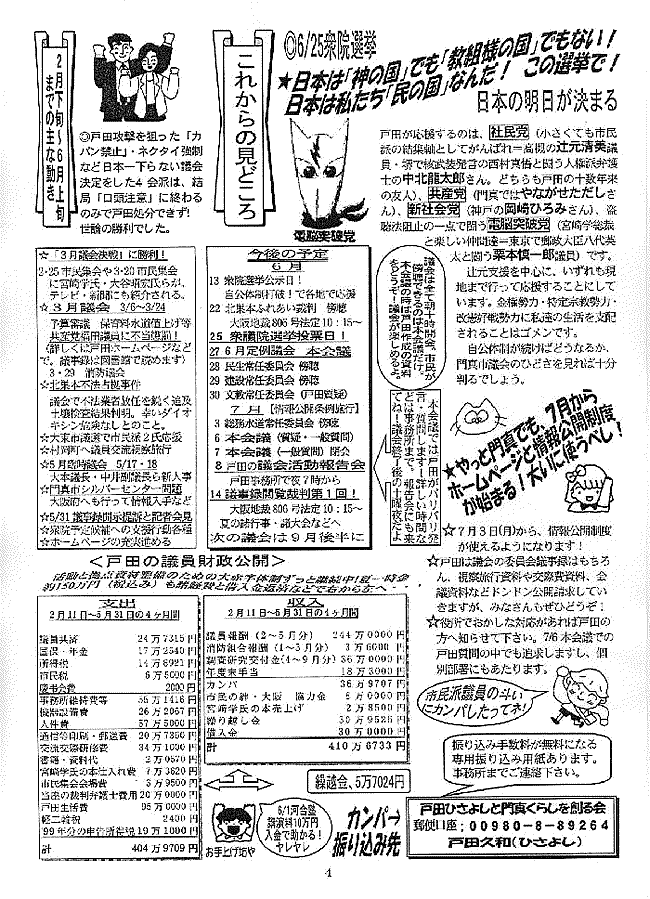 ◎6/25衆院選挙
★日本は「神の国」でも「教組様の国」でもない！
日本は私たち「民の国」なんだ！ この選挙で！
日本の明日が決まる
2月下旬〜6月上旬
までの主な動き
◎戸田攻撃を狙った「カ
バン禁止」・ネクタイ強制
など日本一下らない議会
決定をした4会派は、結
局「口頭注意」に終わる
のみで戸田処分できず！
世論の勝利でした。
これからの見どころ
電脳突破党
戸田が応援するのは、社民党（小さくても市民
派の結集軸としてがんばれ＝高槻の辻元清美議
員・堺で核武装発言の西村真悟と闘う人権派弁護
士の中北龍太郎さん。どちらも戸田の十数年来
の友人）、共産党（門真ではやながせただしさ
ん）、新社会党（神戸の岡崎ひろみさん）、盗
聴法阻止の一点で闘う電脳突破党（宮崎学総裁
と楽しい仲間達＝東京で郵政大臣八代英
太と闘う栗本慎一郎議員）です。
辻元支援を中心に、いずれも現
地まで行って応援することにして
います。金権勢力・特定宗教勢力・
改憲好戦勢力に私達の生活を支配
されることはゴメンです。
自公体制が続けばどうなるか、
門真市議会のひどさを見れば十分
判るでしょう。
☆「3月議会決戦」に勝利！
2・25市民集会や3・20市民集会
に宮崎学氏・大谷昭宏氏らが、
テレビ・新聞にも紹介される。
☆3月議会 3/6〜3/24
予算審議 保育料水道値上げ等
共産党福田議員に不当懲罰！
（詳しくは戸田ホームページなど
で。議事録は図書館で読めます）
3・29 消防議会
☆北巣本不法占拠事件
議会で不法業者放任を鋭く追及
土壌検査結果判明。幸いダイオ
キシン危険なしとのこと。
☆大東市議選で市民派2氏応援
☆村岡町へ議員交流視察旅行
☆5月臨時議会 5/17・18
大本議長・中井副議長ら新人事
☆門真市シルバーセンター問題
大阪府へも行って情報入手など
☆5/31議事録開示提訴と記者会見
☆衆院予定候補への支援行動各種
☆ホームページの充実進める
今後の予定
6 月
13 衆院選挙公示日！
自公体制打破！で各地で応援
22 北巣本ふれあい裁判 傍聴
大阪地裁806号法定10：15〜
25 衆議院選挙投票日！
27 6月定例議会 本会議
28 民生常任委員会 傍聴
29 建設常任委員会 傍聴
30 文教常任委員会（戸田質疑）
7 月 【情報公開条例施行】
3 総務水道常任委員会 傍聴
6 本会議（質疑・一般質問）
7 本会議（一般質問）閉会
8 戸田の議会活動報告会
戸田事務所で夜7時から
14 議事録閲覧裁判第1回！
大阪地裁806号法定10：15〜
夏の諸行・諸大会などへ
次の議会は9月後半に
議会は全て朝十時開会。市民が
傍聴できるのは本会議だけ。
本会議の時は戸田作成の資料
をどうぞ！議会が楽しめるよ。
本会議では戸田がバリバリ発
言・質問します！詳しい時間な
どは事務所まで。報告会にも来
てね！議会終了後の土曜夜だよ
★やっと門真でも、7月から
ホームページと情報公開制度
が始まる！大いに使うべし！
☆7月3日(月)から、情報公開制度
が使えるようになります！
☆戸田は議会の委員会議事録はもちろ
ん、視察旅行資料や交際費資料、会
議資料などドンドン公開請求してい
きますが、みなさんもぜひどうぞ！
☆役所でおかしな対応があれば戸田の
方へ知らせて下さい。7/6本会議での
戸田質問の中でも追求しますし、個
別部署にもあたります。
市民派議員の斗い
にカンパしたってネ！
＜戸田の議員財政公開＞
支出
2月11日〜5月31日の4ヶ月間
議員共済 24万7315円
国保・年金 17万2540円
所得税 14万8921円
市民税 6万5000円
慶弔会費 2000円
事務所維持費等 55万1416円
機器設備費 26万2067円
人件費 57万5000円
通信等印刷・郵送費 20万7350円
交流交際研修費 34万1030円
書籍・資料代 2万0570円
宮崎学氏の本仕入れ費 7万3620円
市民集会会場費 3万9500円
当座の裁判弁護士費用 20万0000円
戸田生活費 95万0000円
軽二維税 2400円
'99年分の申告所得税 19万1000円
計 404万9709円
収入
2月11日〜5月31日の4ヶ月間
議員報酬（2〜5月分） 244万0000円
消防組合報酬（1〜3月分） 3万6000円
調査研究交付金(4〜9月分) 36万0000円
年度末手当 18万3000円
カンパ 36万9707円
市民の絆・大阪 協力金 5万0000円
宮崎学氏の本売上げ 2万8500円
繰り越し金 30万9526円
借入金 30万0000円
計 410万6733円
繰越金、5万7024円
お手上げ坊や
6/1河合塾
講演料10万円
入金で助かる！
ヤレヤレ
カンパ→
振り込み先
振り込み手数料が無料になる
専用振り込み用紙あります。
事務所までご連絡下さい。
戸田ひさよしと門真くらしを創る会
郵便口座：00980-8-89264
戸田久和(ひさよし)
4